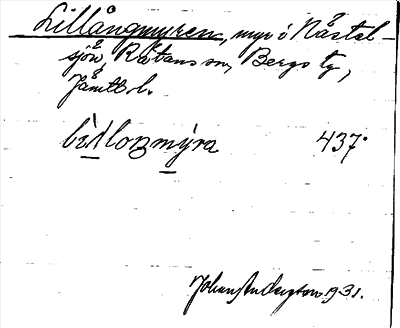 Lillångmyren, myr i Nästel-
sjön, Rätans sn, Bergs tg,
Jämtl. l.
437.
Johan Anderzton 1931.